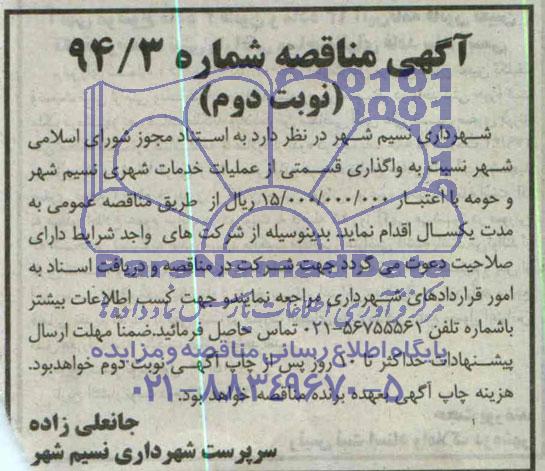 آگهی مناقصه شماره ۹۴/۳
(نوبت دوم)
شهرداری نسیم شهر در نظر دارد به استناد مجوز شورای اسلامی
شهر نسبت به واگذاری قسمتی از عملیات خدمات شهری نسیم شهر
و حومه با اعتبار ۱۵/۰۰۰/۰۰۰/۰۰۰ ریال از طریق مناقصه عمومی به
مدت یکسال اقدام نماید. بدینوسیله از شرکت های واجد شرایط دارای
صلاحیت دعوت می گردد جهت شرکت در مناقصه و دریافت اسناد به
امور قراردادهای شهرداری مراجعه نمایند و جهت کسب اطلاعات بیشتر
باشماره تلفن ۵۶۷۵۵۵۶۱-۰۲۱ تماس حاصل فرمائید.ضمنا مهلت ارسال
پیشنهادات حداکثر تا ۱۰ روز پس از چاپ آگهی نوبت دوم خواهدبود.
هزینه چاپ آگهی بعهده برنده مناقصه خواهد بود.
جانعلی زاده
سرپرست شهرداری نسیم شهر
ParsNamadData
پایگاه اطلاع رسانی مناقصه و مزایده
۰۲۱-۸۸۳۴۹۶۷۰-۵